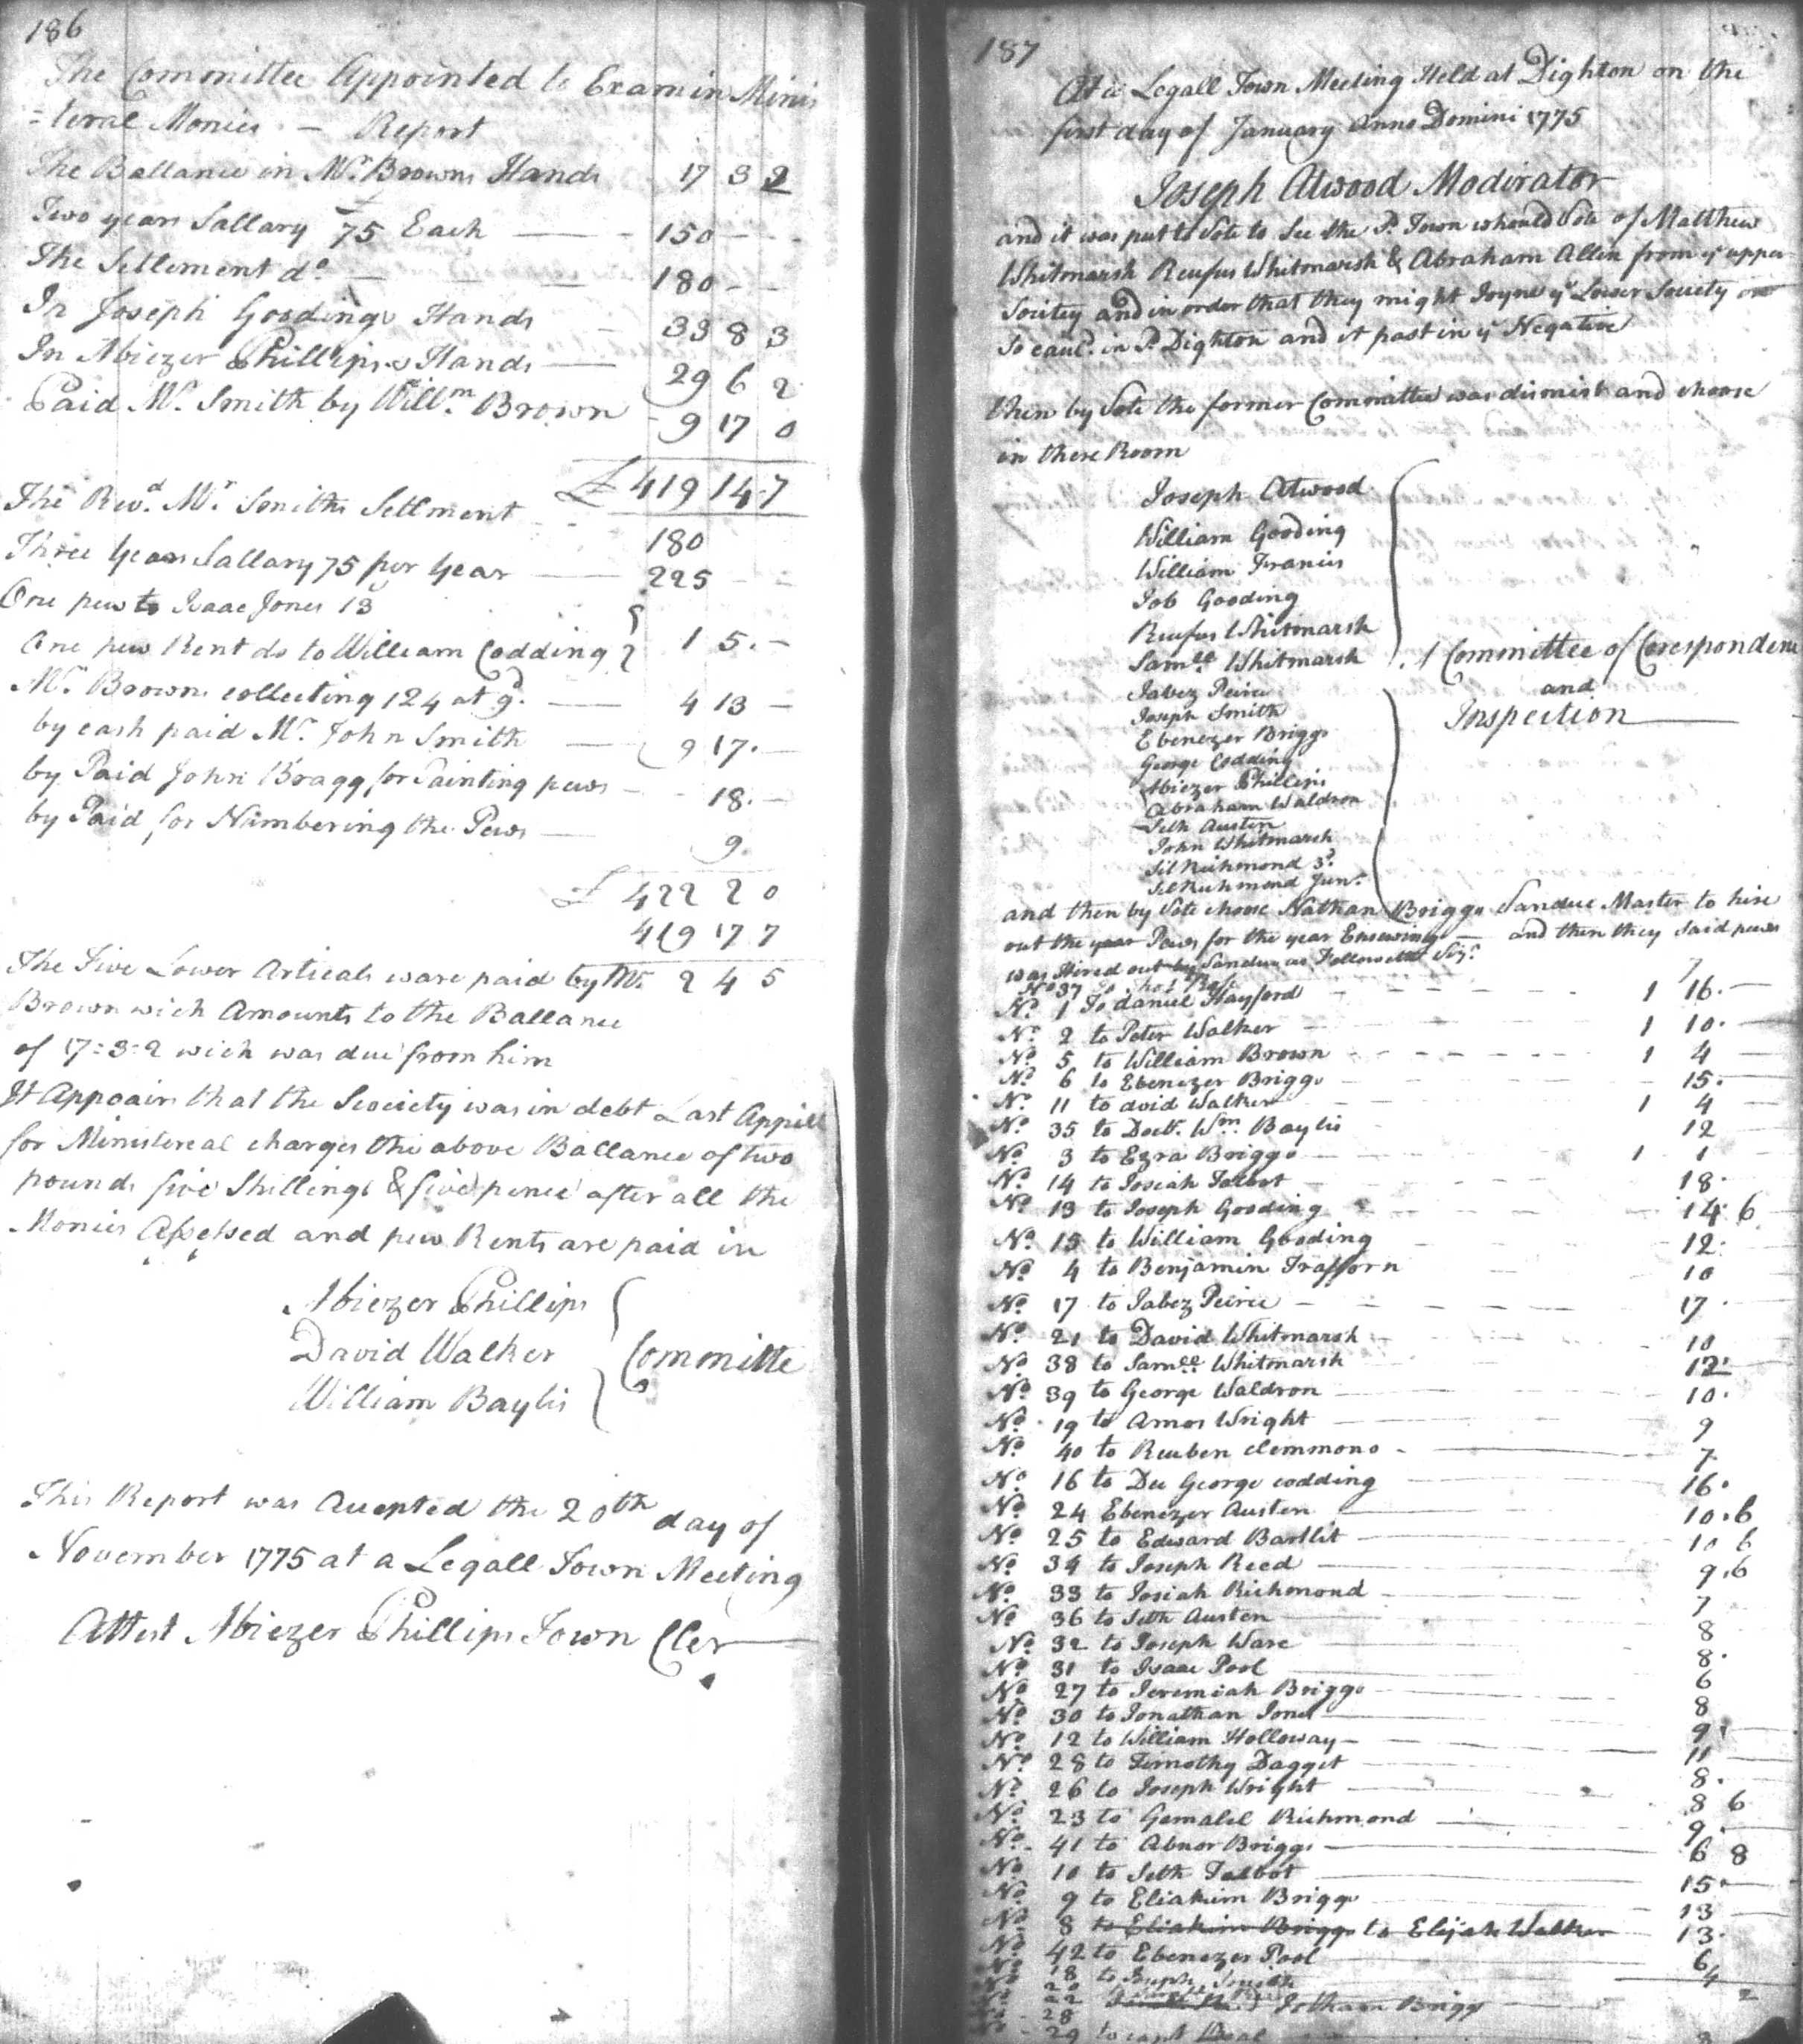 186
The Committee Appointed to Examin Minis
=teral Monies — Report
The Ballance in Mr. Browns Hands 17 3 2
Two years Sallary 75 Each — 150
The Settlement do — 180
In Joseph Goodings Hands 33 8 3
In Abiezer Phillips Hands — 29 6 2
Paid Mr. Smith by Willm Brown 9 17 0
£ 419 14 7
The Revd. Mr. Smiths Settment 180
Three Years Sallary 75 per Year — 225
One pew to Isaac Jones 13
One pew Rent do to William Codding } 1 5 —
Mr. Browns collecting 124 at 9d. — 4 13 —
by cash paid Mr. John Smith — 9 17 —
by Paid John Bragg for Painting pews 18 —
by Paid for Numbering the Pews — 9
£ 422 2 0
419 17 7
The Five Lower Articals ware paid by Mr. 2 4 5
Brown wich Amounts to the Ballance
of 17=3=2 wich was due from him
It Appears that the Society was in debt Last Appril
for Ministereal charges the above Ballance of two
pounds five Shillings & five pence after all the
Monies Assessed and pew Rents are paid in
Abiezer Phillips
David Walker } Committe
William Baylis
This Report was Accepted the 20th day of
November 1775 at a Legall Town Meeting
Attest Abiezer Phillips Town Cler
187
At a Legall Town Meeting Held at Dighton on the
first day of January Anno Domini 1775
Joseph Atwood Modirator
and it was put to Vote to See the Sd. Town whould Vote of Matthew
Whitmarsh Reufus Whitmarsh & Abraham Allen from ye upper
Socitey and in order that they might Joyne ye Lower Society
So caul'd. in Sd. Dighton and it past in ye Negative
then by Vote the former Committee was dismist and choose
in there Room
Joseph Atwood
William Gooding
William Francis
Job Gooding
Reufus Whitmarsh
Samll Whitmarsh
A Committee of Corespondence
Jabez Peirce
and
Joseph Smith
Inspection
Ebenezer Briggs
George Codding
Abiezer Phillips
Abraham Waldron
Seth Austen
John Whitmarsh
Sil Richmond 3d.
Sil Richmond Junr.
and then by Vote choose Nathan Briggs Vandue Master to hire
out the year Pews for the year Ensewing — and then they said pews
was Hired out by Vandue as Followeth Viz.
No 37
No. 1 To daniel Hayford 1 16 —
No. 2 to Peter Walker 1 10 —
No. 5 to William Brown 1 4 —
No. 6 to Ebenezer Briggs 15
No. 11 to david Walker 1 4
No. 35 to Doctr. Wm. Baylis 12
No. 3 to Ezra Briggs 1 1
No. 14 to Josiah Talbot 18
No. 13 to Joseph Gooding 14 6
No. 15 to William Gooding 12
No. 4 to Benjamin Trafforn 10
No. 17 to Jabez Peirce 17
No. 21 to David Whitmarsh 10
No. 38 to Samll Whitmarsh 12
No. 39 to George Waldron 10
No. 19 to Amos Wright 9
No. 40 to Reuben Clemmons 7
No. 16 to Dec George codding 16
No. 24 Ebenezer Austen 10 6
No. 25 to Edward Bartlit 10 6
No. 34 to Joseph Reed 9 6
No. 33 to Josiah Richmond 7
No. 36 to Seth Austen 8
No. 32 to Joseph Ware 8
No. 31 to Isaac Pool 6
No. 27 to Jeremiah Briggs 8
No. 30 to Jonathan Jones 9
No. 12 to William Holloway 11
No. 28 to Timothy Dagget 8
No. 26 to Joseph Wright 8 6
No. 23 to Gamalel Richmond 9
No. 41 to Abner Briggs 6 8
No. 10 to Seth Talbot 15
No. 9 to Eliakim Briggs 13
No. 8 to Eliakim Briggs to Elijah Walker 13
No. 42 to Ebenezer Pool 6
18 to Smith 4
20
22 Jotham Briggs 2
28
29 to capt